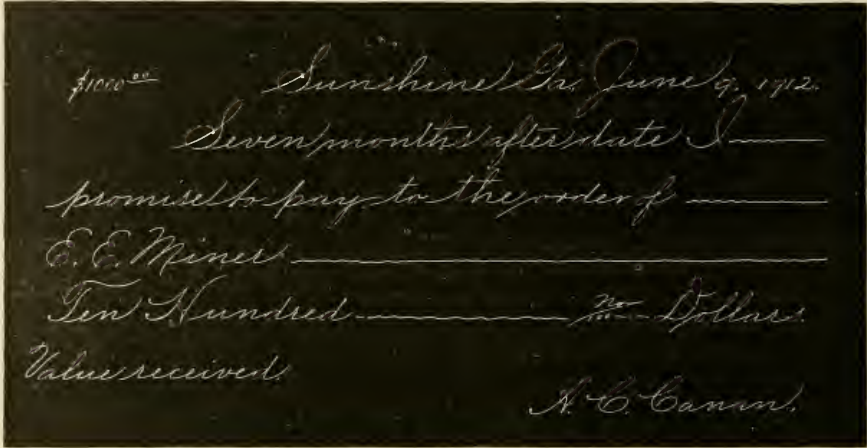 $1000 00 Sunshine Ia. June 9, 1912.
Seven months after date I
promise to pay to the order of
E. E. Miner
Ten Hundred no Dollars.
Value received.